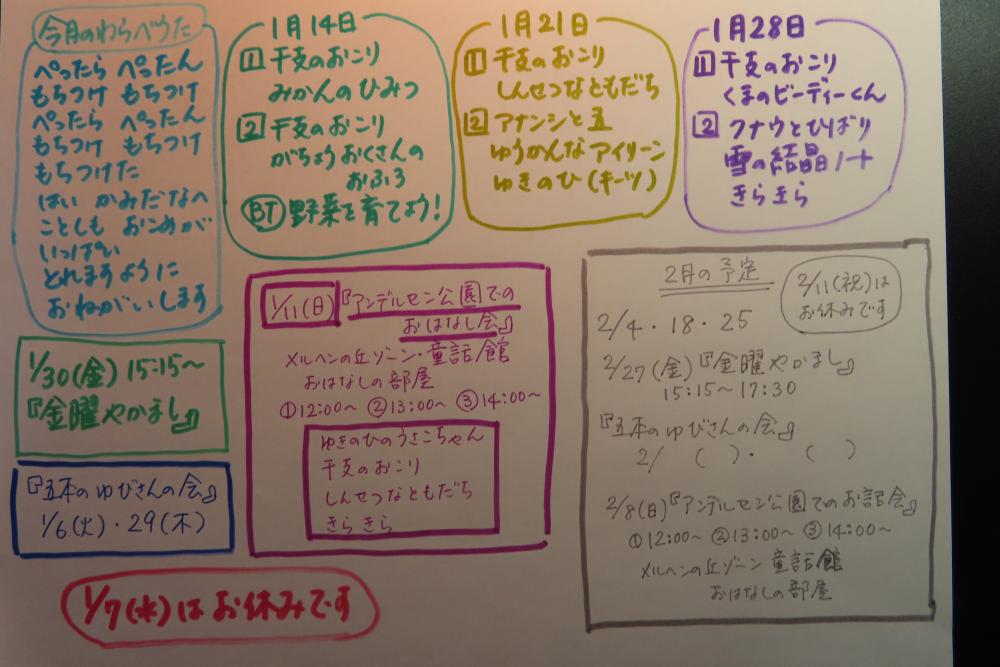 今月のわらべうた
ぺったら ぺったん
もちつけ もちつけ
ぺったら ぺったん
もちつけ もちつけ
もちつけた
はい かみだなへ
ことしも おこめが
いっぱい
とれますように
おねがいします
1月14日
1 干支のおこり
みかんのひみつ
2 干支のおこり
がちょうおくさんの
おふろ
BT 野菜を育てよう!
1月21日
1 干支のおこり
しんせつなともだち
2 アナンシと五
ゆうかんなアイリーン
ゆきのひ(キーツ)
1月28日
1 干支のおこり
くまのビーディーくん
2 クナウとひばり
雪の結晶ノート
きらきら
1/30(金) 15:15〜
『金曜やかまし』
『五本のゆびさんの会』
1/6(火)・29(木)
1/7(水)はお休みです
1/11(日)『アンデルセン公園での
おはなし会』
メルヘンの丘ゾーン・童話館
おはなしの部屋
①12:00〜 ②13:00〜 ③14:00〜
ゆきのひのうさこちゃん
干支のおこり
しんせつなともだち
きらきら
2月の予定
2/11(祝)は
お休みです
2/4・18・25
2/27(金)『金曜やかまし』
15:15〜17:30
『五本のゆびさんの会』
2/ ( )・ ( )
2/8(日)『アンデルセン公園でのお話会』
①12:00〜 ②13:00〜 ③14:00〜
メルヘンの丘ゾーン 童話館
おはなしの部屋